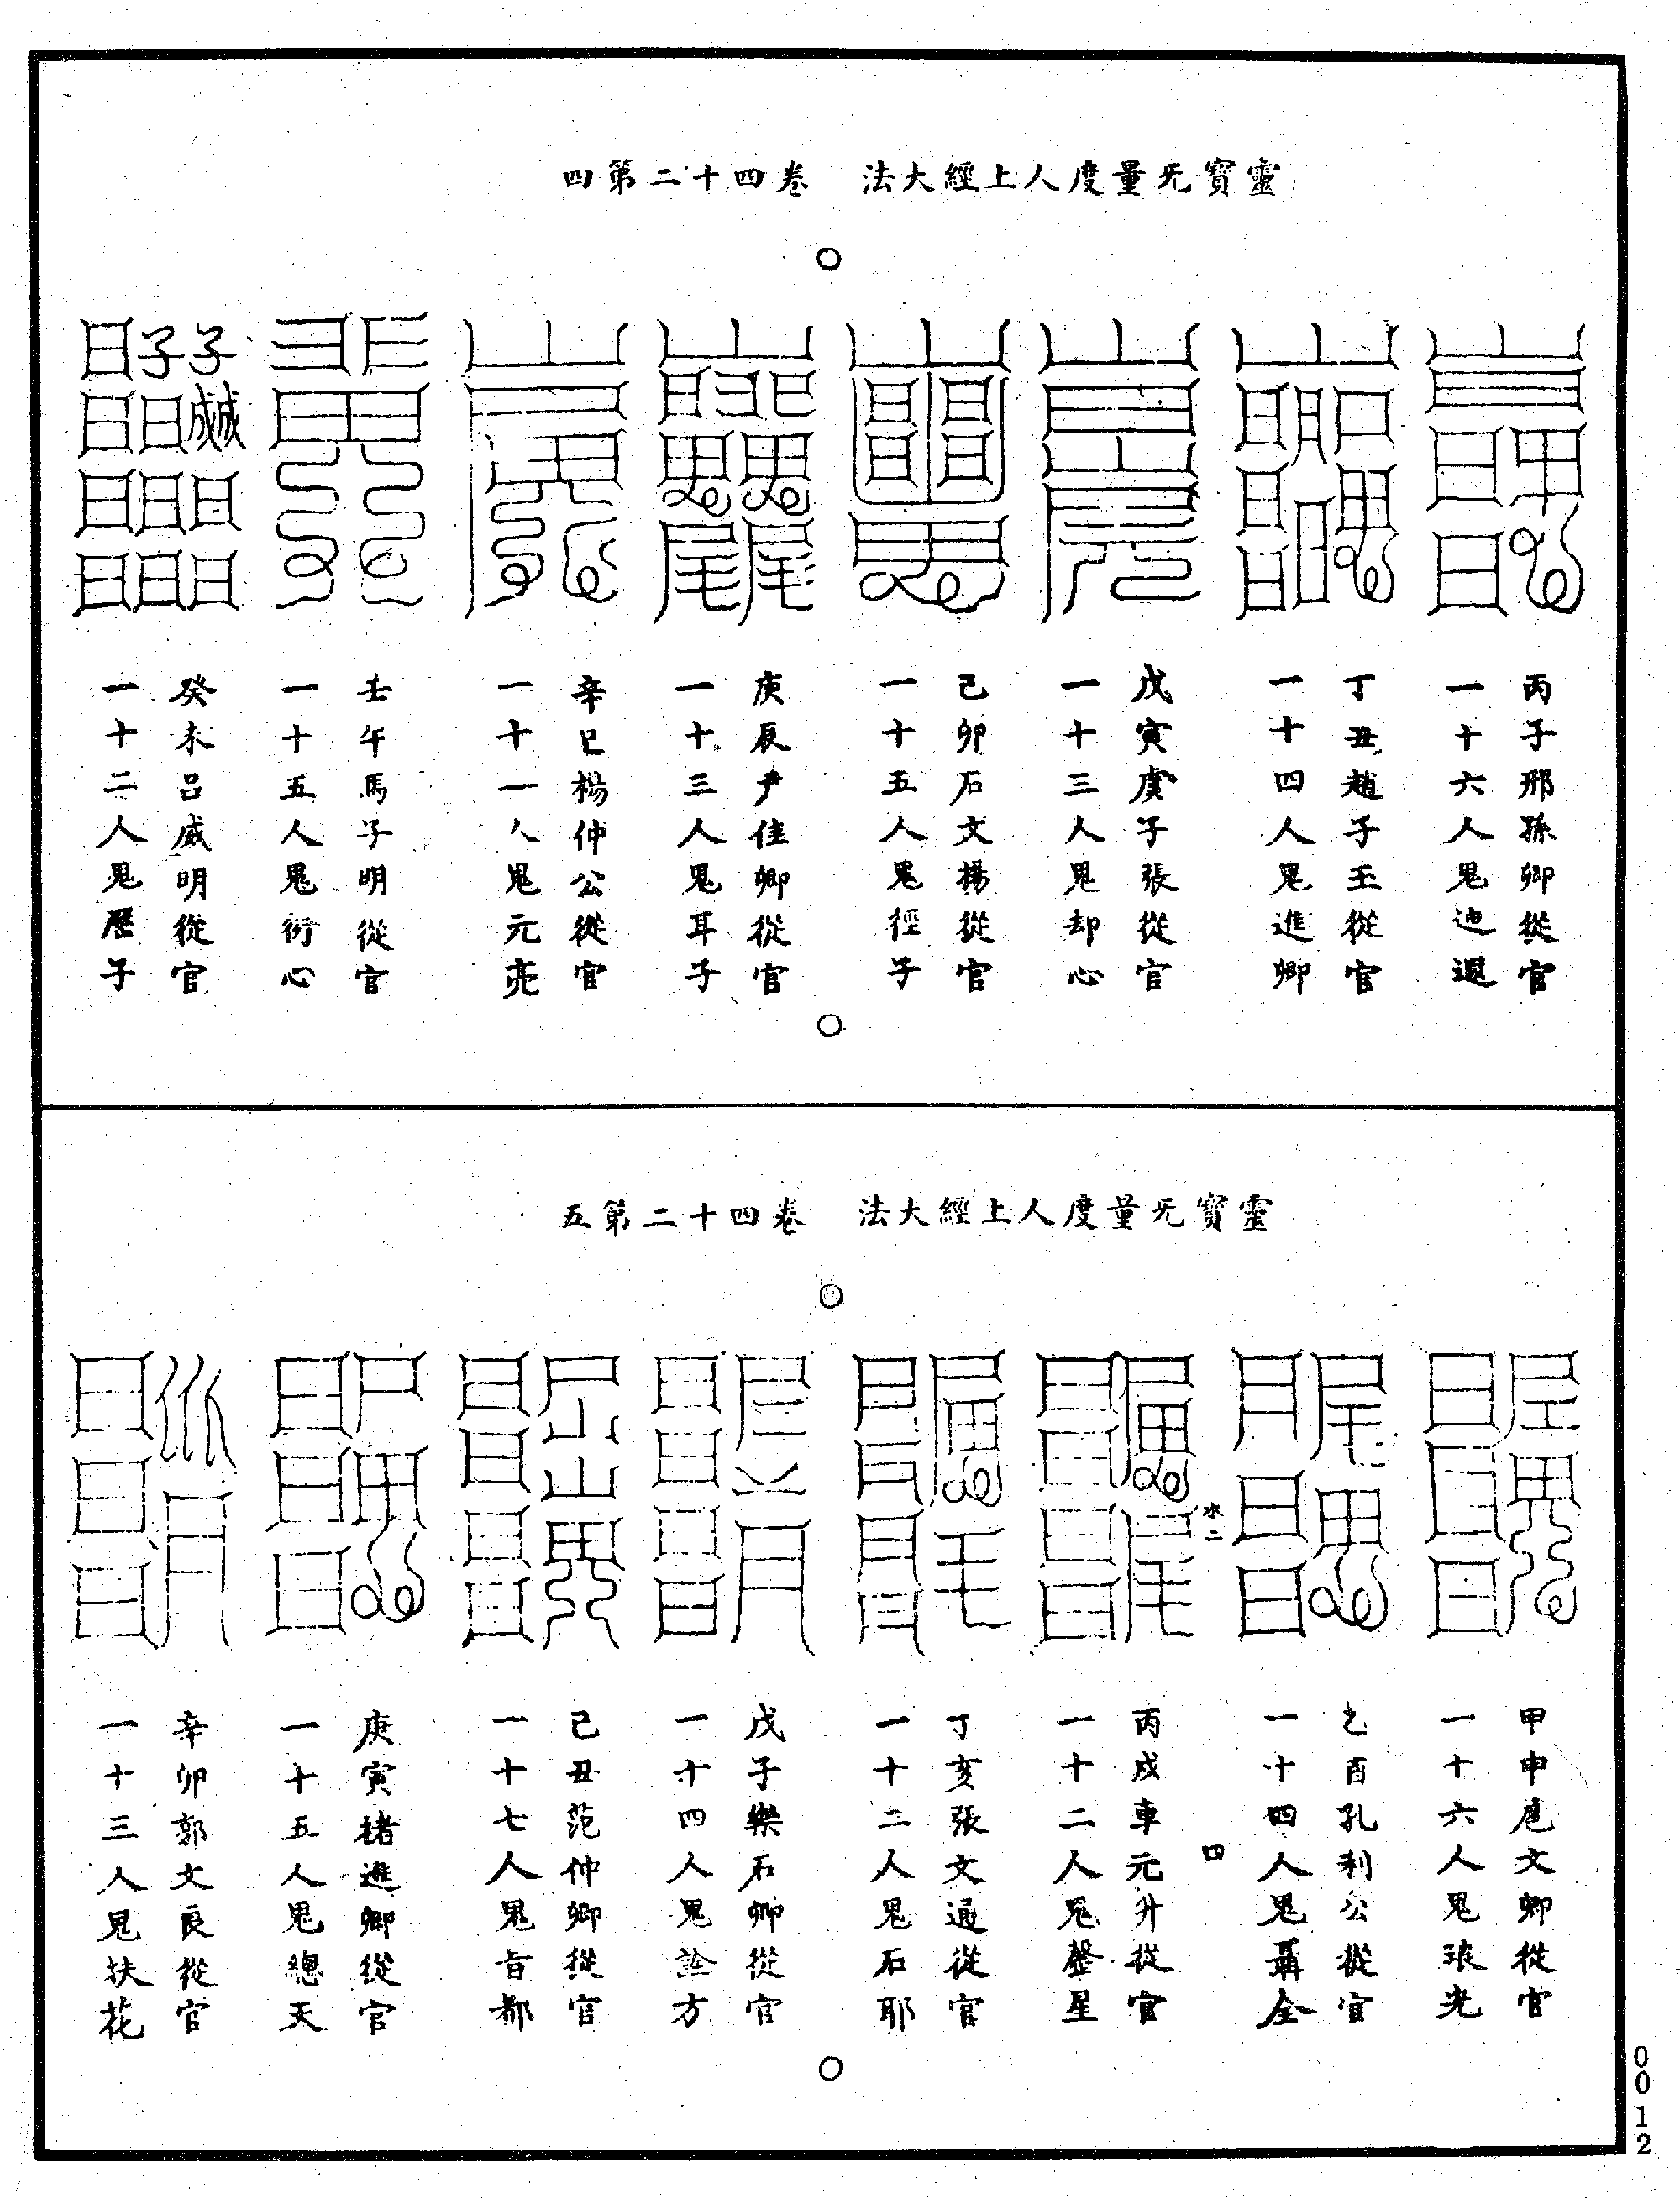 靈寶旡量度人上經大法　卷四十二第四
丙子邢孫卿從官
一十六人鬼迪退
丁丑趙子玉從官
一十四人鬼進卿
戊寅虞子張從官
一十三人鬼却心
己卯石文楊從官
一十五人鬼徑子
庚辰尹佳卿從官
一十三人鬼耳子
辛巳楊仲公從官
一十一人鬼元亮
壬午馬子明從官
一十五人鬼衍心
癸未呂威明從官
一十二人鬼歷子
靈寶旡量度人上經大法　卷四十二第五
甲申扈文卿從官
一十六人鬼琅光
乙酉孔利公從官
一十四人鬼聶全
水二
四
丙戌車元升從官
一十二人鬼罄星
丁亥張文通從官
一十二人鬼石耶
戊子樂石卿從官
一十四人鬼詮方
己丑范仲卿從官
一十七人鬼旨都
庚寅褚進卿從官
一十五人鬼總天
辛卯郭文良從官
一十三人鬼扶花
0012